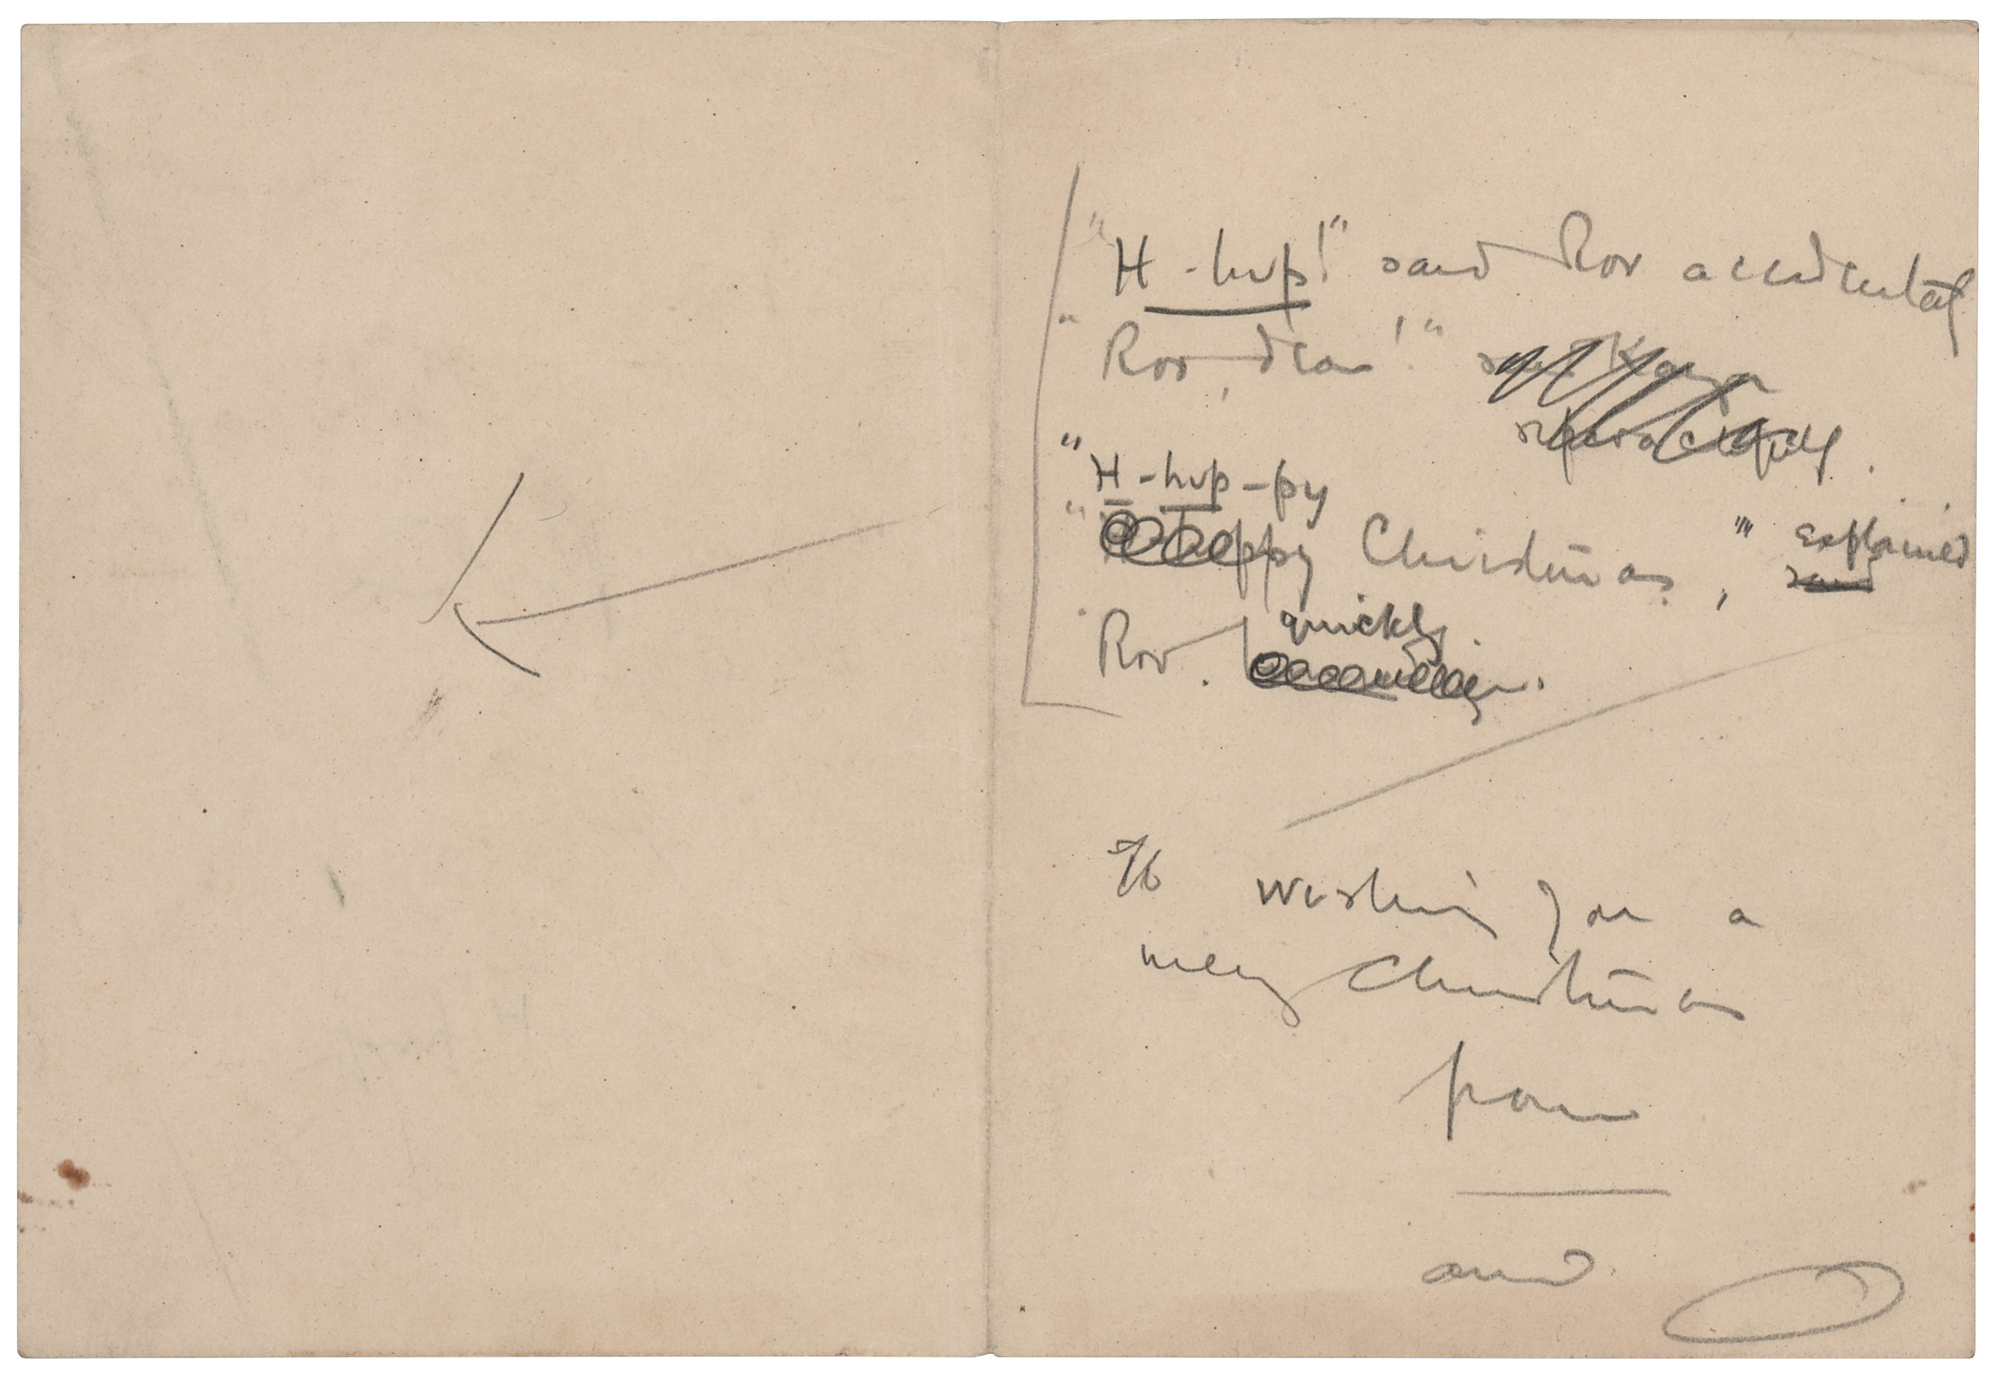 "H-hup!" said Roo accidentally
"Roo, dear!" said Kanga
reproachfully.
"H-hup-py
"happy Christmas," explained
said
Roo. quickly.
wishing you a
merry Christmas
from
and